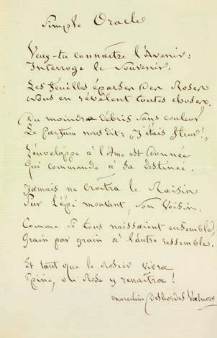 Simple Oracle
Veux-tu connaître l'Avenir :
Interroge le Souvenir.
Les feuilles éparses des Roses
nous en révèlent toutes choses.
Du moindre débris sans couleur
Le parfum nous dit : J'étais fleur !
L'enveloppe à l'Ame est donnée
Qui commande à sa destinée.
Jamais ne croîtra le Raisin
Sur l'épi mouvant, son Voisin.
Comme si tous naissaient ensemble,
Grain par grain à l'autre ressemble.
Et tant que le rosier vivra
Épine, ou Rose y renaîtra !
Marceline Desbordes Valmore